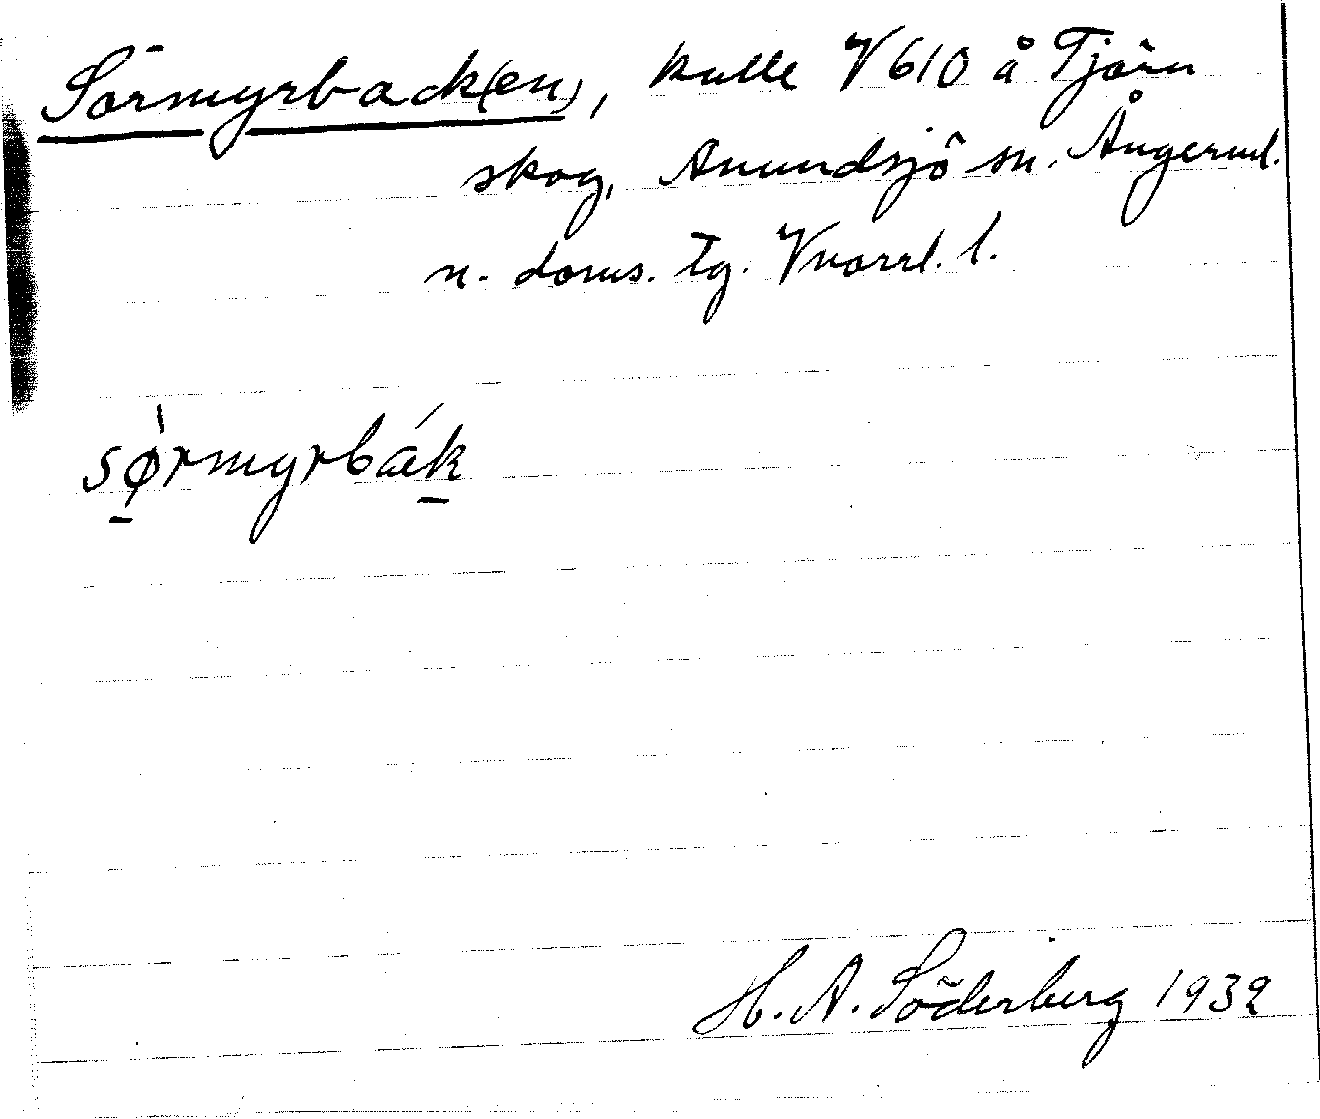 Sörmyrback(en), kulle V 610 å Tjärn
skog, Anundsjö sn. Ångerml.
n. doms. tg. Vnorrl. l.
sørmyrbák
H. A. Söderberg 1932